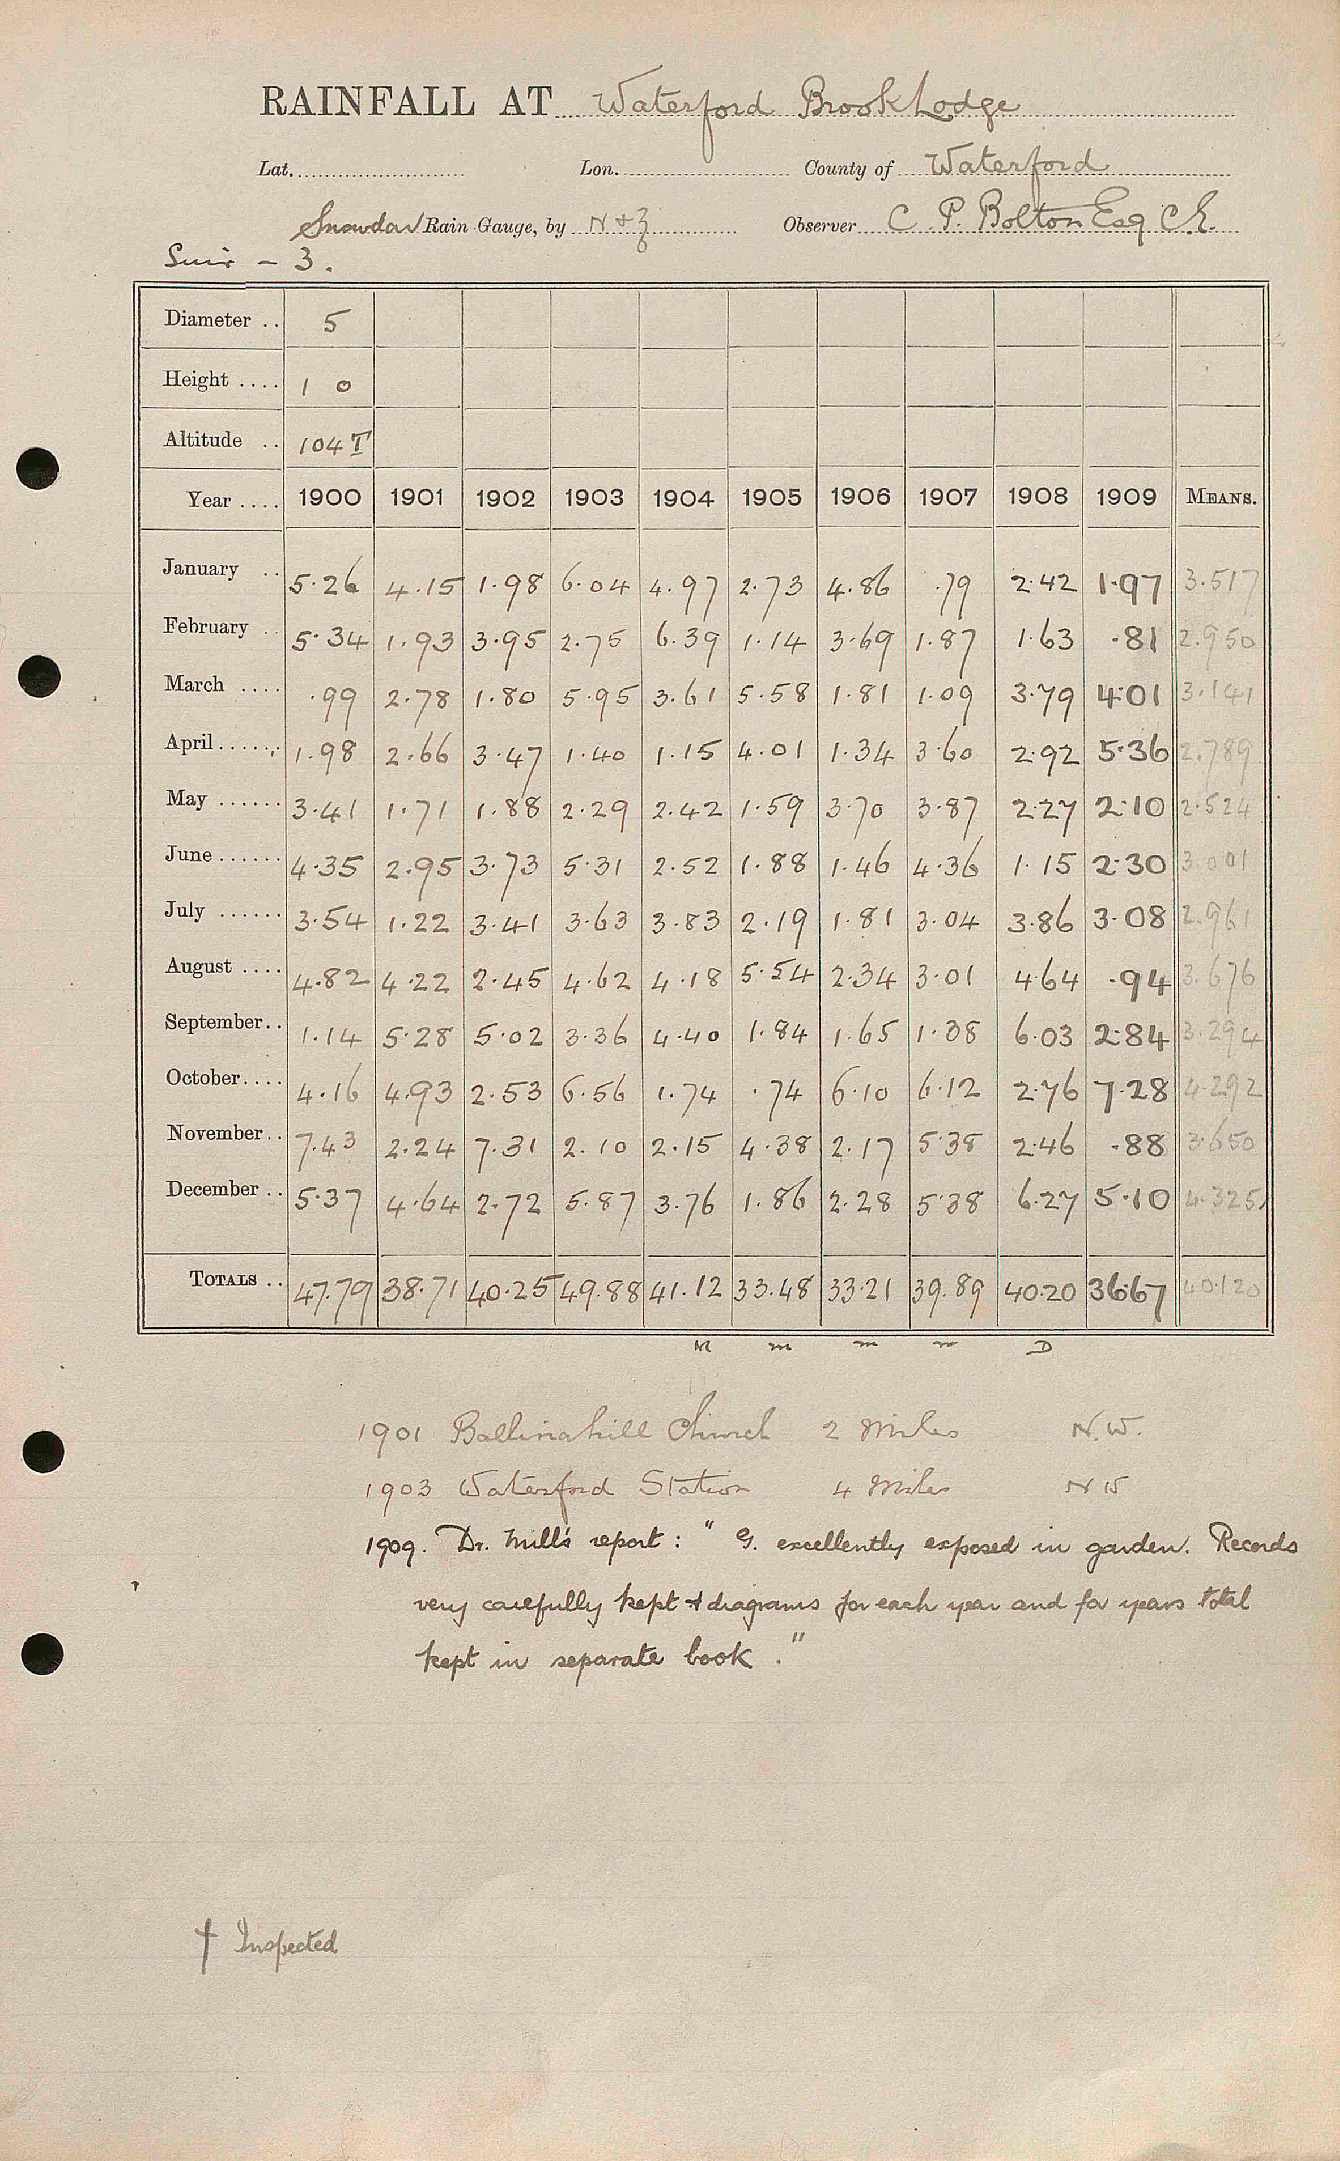 RAINFALL AT Waterford Brook Lodge
Lat. Lon. County of Waterford
Snowdon Rain Gauge, by N & Z Observer C. P. Bolton Esq C.E.
Suir - 3.
Diameter .. 5
Height .... 1 0
Altitude .. 104 T
Year .... 1900 1901 1902 1903 1904 1905 1906 1907 1908 1909 MEANS.
January .. 5.26 4.15 1.98 6.04 4.97 2.73 4.86 .79 2.42 1.97 3.517
February .. 5.34 1.93 3.95 2.75 6.39 1.14 3.69 1.87 1.63 .81 2.950
March .... .99 2.78 1.80 5.95 3.61 5.58 1.81 1.09 3.79 4.01 3.141
April ...... 1.98 2.66 3.47 1.40 1.15 4.01 1.34 3.60 2.92 5.36 2.789
May ...... 3.41 1.71 1.88 2.29 2.42 1.59 3.70 3.87 2.27 2.10 2.524
June ...... 4.35 2.95 3.73 5.31 2.52 1.88 1.46 4.36 1.15 2.30 3.001
July ...... 3.54 1.22 3.41 3.63 3.83 2.19 1.81 3.04 3.86 3.08 2.961
August .... 4.82 4.22 2.45 4.62 4.18 5.54 2.34 3.01 4.64 .94 3.676
September .. 1.14 5.28 5.02 3.36 4.40 1.84 1.65 1.38 6.03 2.84 3.294
October .... 4.16 4.93 2.53 6.56 1.74 .74 6.10 6.12 2.76 7.28 4.292
November .. 7.43 2.24 7.31 2.10 2.15 4.38 2.17 5.38 2.46 .88 3.650
December .. 5.37 4.64 2.72 5.87 3.76 1.86 2.28 5.38 6.27 5.10 4.325
TOTALS .. 47.79 38.71 40.25 49.88 41.12 33.48 33.21 39.89 40.20 36.67 40.120
M m m D
1901 Ballinahill Church 2 Miles N.W.
1903 Waterford Station 4 Miles N W
1909. Dr. Mill's report : " G. excellently exposed in garden. Records
very carefully kept & diagrams for each year and for years total
kept in separate book . "
† Inspected